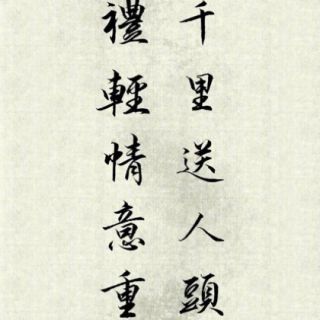 千里送人頭
禮輕情意重